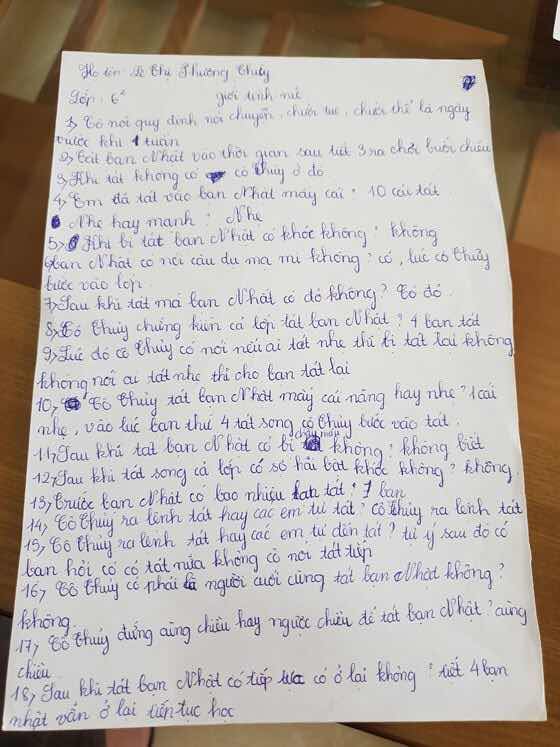 Họ tên: Lê Thị Phương Thúy
Lớp: 6² giới tính nữ
1, Cô nói quy định nói chuyện, chửi tục, chửi thề là ngày
trước khi 1 tuần
2, Tát bạn Nhật vào thời gian sau tiết 3 ra chơi buổi chiều
3, Khi tát không có cô Thủy ở đó
4, Em đã tát vào bạn Nhật mấy cái: 10 cái tát
Nhẹ hay mạnh: Nhẹ
5, Khi bị tát bạn Nhật có khóc không: không
6, bạn Nhật có nói câu đu ma mi không: có, lúc cô Thủy
bước vào lớp.
7, Sau khi tát má bạn Nhật có đỏ không? Có đỏ.
8, Cô Thủy chứng kiến cả lớp tát bạn Nhật? 4 bạn tát
9, Lúc đó cô Thủy có nói nếu ai tát nhẹ thì bị tát lại không
không nói ai tát nhẹ thì cho bạn tát lại
10, Cô Thủy tát bạn Nhật mấy cái nặng hay nhẹ? 1 cái
nhẹ, vào lúc bạn thứ 4 tát song cô Thủy bước vào tát.
11, Sau khi tát bạn Nhật có bị chảy máu không? không biết
12, Sau khi tát song cả lớp có sợ hãi bật khóc không? không.
13, Trước bạn Nhật có bao nhiêu bạn tát? 7 bạn
14, Cô Thủy ra lệnh tát hay các em tự tát? Cô Thủy ra lệnh tát
15, Cô Thủy ra lệnh tát hay các em tự đến tát? tự ý sau đó có
bạn hỏi cô có tát nữa không cô nói tát tiếp
16, Cô Thủy có phải là người cuối cùng tát bạn Nhật không?
không.
17, Cô Thủy đứng cùng chiều hay ngược chiều để tát bạn Nhật? cùng
chiều.
18, Sau khi tát bạn Nhật có tiếp tục có ở lại không? tiết 4 bạn
nhật vẫn ở lại tiếp tục học